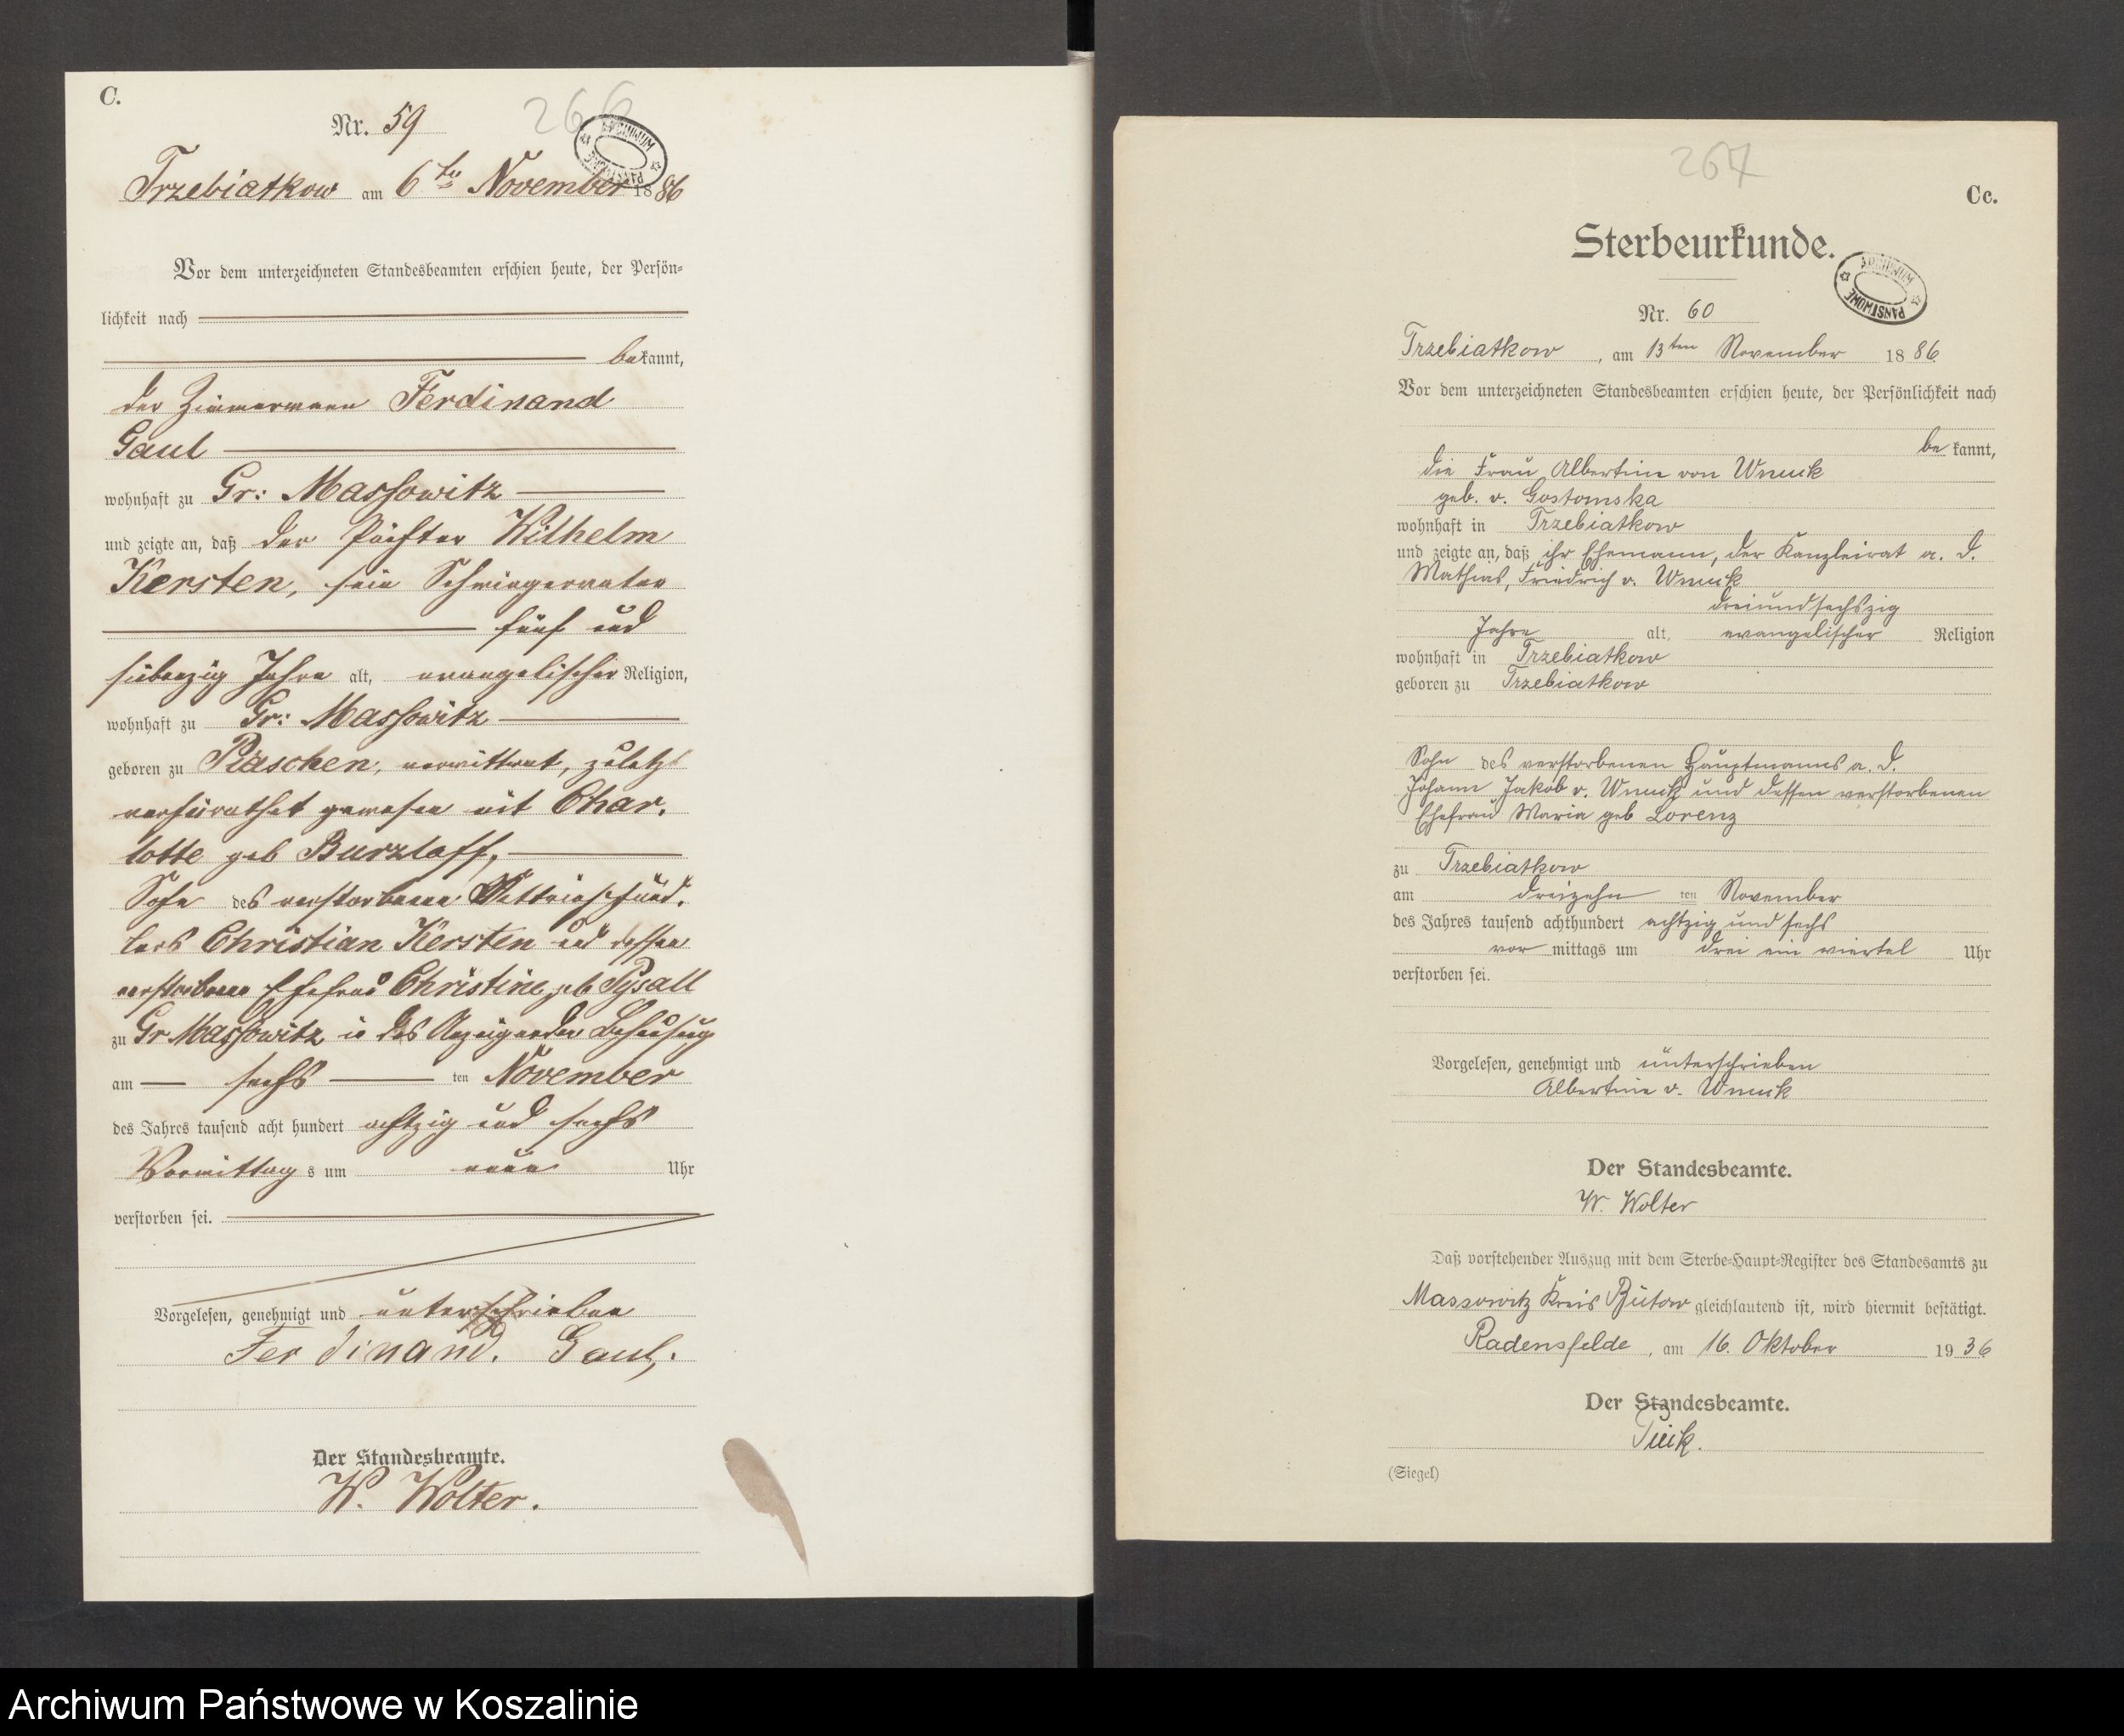 C.
266
Nr. 59
ARCHIWUM PAŃSTWOWE
Trzebiatkow am 6ten November 1886
Vor dem unterzeichneten Standesbeamten erschien heute, der Persön-
lichkeit nach
bekannt,
der Zimmermann Ferdinand
Gaul
wohnhaft zu Gr: Massowitz
und zeigte an, daß der Pächter Wilhelm
Kersten, sein Schwiegervater
fünf und
siebenzig Jahre alt, evangelischer Religion,
wohnhaft zu Gr: Massowitz
geboren zu Räschen, verwittwet, zuletzt
verheirathet gewesen mit Char.
lotte geb Burzlaff,
Sohn des verstorbenen
lers Christian Kersten und dessen
verstorbene Ehefrau Christine geb Pysall
zu Gr Massowitz in des Anzeigenden Behausung
am sechs ten November
des Jahres tausend acht hundert achtzig und sechs
Vormittags um neun Uhr
verstorben sei.
Vorgelesen, genehmigt und unterschrieben
Ferdinand. Gaul,.
Der Standesbeamte.
W. Wolter.
267
Cc.
Sterbeurkunde.
ARCHIWUM PAŃSTWOWE
Nr. 60
Trzebiatkow, am 13ten November 1886
Vor dem unterzeichneten Standesbeamten erschien heute, der Persönlichkeit nach
bekannt,
die Frau Albertine von Wnuck
geb. v. Gostomska
wohnhaft in Trzebiatkow
und zeigte an, daß ihr Ehemann, der Kanzleirat a. D.
Mathias, Friedrich v. Wnuck
dreiundsechszig
Jahre alt, evangelischer Religion
wohnhaft in Trzebiatkow
geboren zu Trzebiatkow
Sohn des verstorbenen Hauptmanns a. D.
Johann Jakob v. Wnuck und dessen verstorbenen
Ehefrau Maria geb Lorenz
zu Trzebiatkow
am dreizehn ten November
des Jahres tausend achthundert achtzig und sechs
vor mittags um drei ein viertel Uhr
verstorben sei.
Vorgelesen, genehmigt und unterschrieben
Albertine v. Wnuck
Der Standesbeamte.
W. Wolter
Daß vorstehender Auszug mit dem Sterbe-Haupt-Register des Standesamts zu
Massowitz Kreis Bütow gleichlautend ist, wird hiermit bestätigt.
Radensfelde, am 16. Oktober 1936
Der Standesbeamte.
(Siegel)
Archiwum Państwowe w Koszalinie